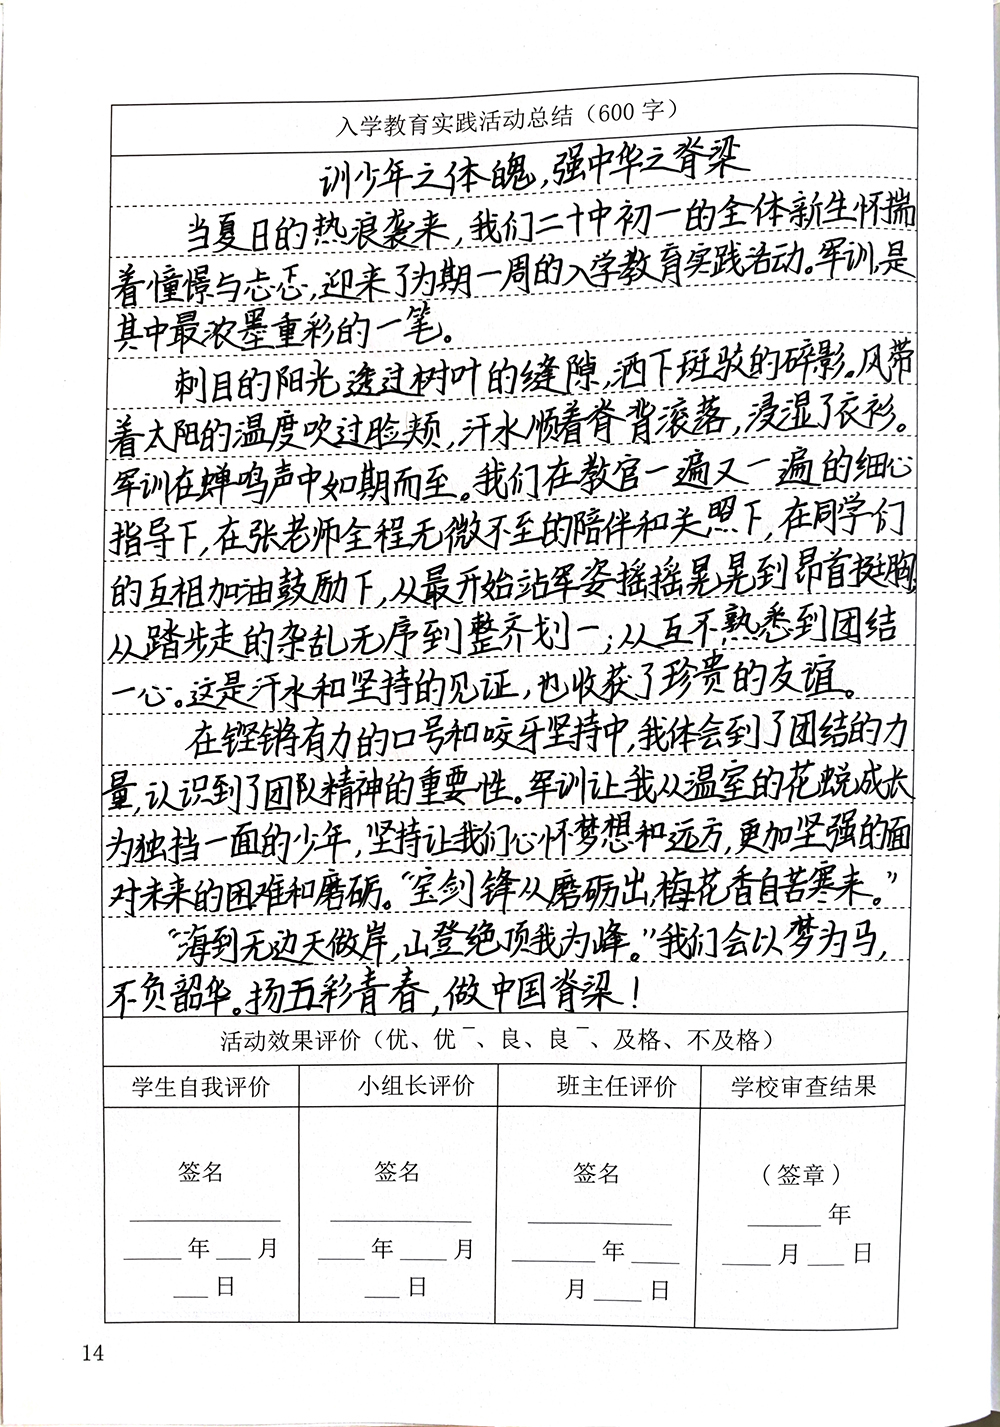 入学教育实践活动总结（600 字）
训少年之体魄,强中华之脊梁
当夏日的热浪袭来,我们二十中初一的全体新生怀揣
着憧憬与忐忑,迎来了为期一周的入学教育实践活动。军训,是
其中最浓墨重彩的一笔。
刺目的阳光透过树叶的缝隙,洒下斑驳的碎影。风带
着太阳的温度吹过脸颊,汗水顺着脊背滚落,浸湿了衣衫。
军训在蝉鸣声中如期而至。我们在教官一遍又一遍的细心
指导下,在张老师全程无微不至的陪伴和关照下,在同学们
的互相加油鼓励下,从最开始站军姿摇摇晃晃到昂首挺胸;
从踏步走的杂乱无序到整齐划一;从互不熟悉到团结
一心。这是汗水和坚持的见证,也收获了珍贵的友谊。
在铿锵有力的口号和咬牙坚持中,我体会到了团结的力
量,认识到了团队精神的重要性。军训让我从温室的花蜕成长
为独挡一面的少年,坚持让我们心怀梦想和远方,更加坚强的面
对未来的困难和磨砺。“宝剑锋从磨砺出,梅花香自苦寒来。”
“海到无边天做岸,山登绝顶我为峰。”我们会以梦为马,
不负韶华。扬五彩青春,做中国脊梁!
活动效果评价（优、优⁻、良、良⁻、及格、不及格）
学生自我评价 小组长评价 班主任评价 学校审查结果
签名 签名 签名 （签章）
____年___月 ___年____月 ______年____ ______年
___日 ___日 月____日 ____月____日
14